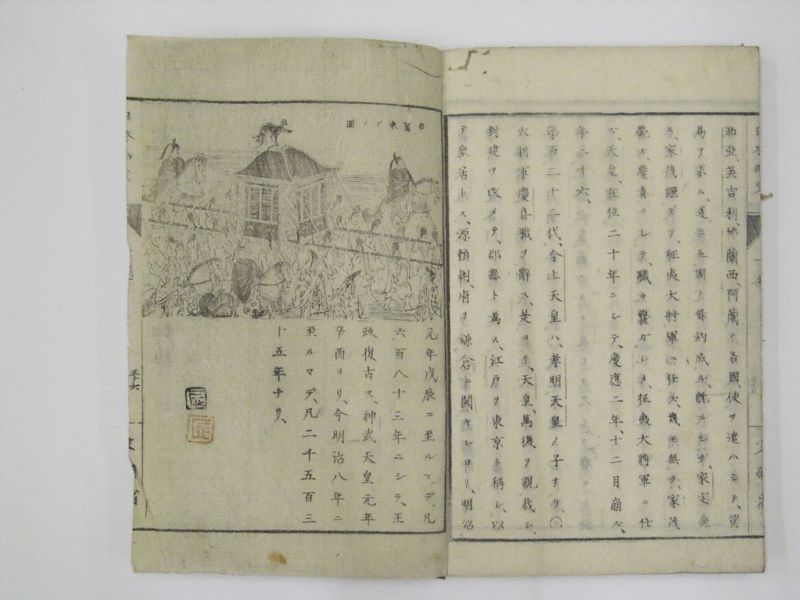 西亜、英吉利、仏蘭西、阿蘭ノ各国、使ヲ遣ハシテ、貿
易ヲ求ム、遂ニ五国ト条約成ル、既ニシテ、家定薨
ズ、家茂継ギテ、征夷大将軍ニ任ズ、幾モ無ク、家茂
薨ズ、慶喜ヲシテ、職ヲ襲ガシメ、征夷大将軍ニ任
ズ、天皇、在位二十年ニシテ、慶應二年、十二月崩ズ、
年三十六、
第百二十一代、今上天皇ハ、孝明天皇ノ子ナリ、〇
大将軍慶喜職ヲ辞ス、是ヨリ、天皇、萬機ヲ親裁シ、
封建ヲ改メテ、郡縣ト為ス、江戸ヲ東京ト稱シ、以
テ皇居トス、源頼朝、府ヲ鎌倉ニ開キシヨリ、明治
車駕東下ノ圖
元年戊辰ニ至ルマデ、凡
六百八十三年ニシテ、王
政復古ス、神武天皇元年
辛酉ヨリ、今明治八年ニ
至ルマデ、凡二千五百三
十五年ナリ、